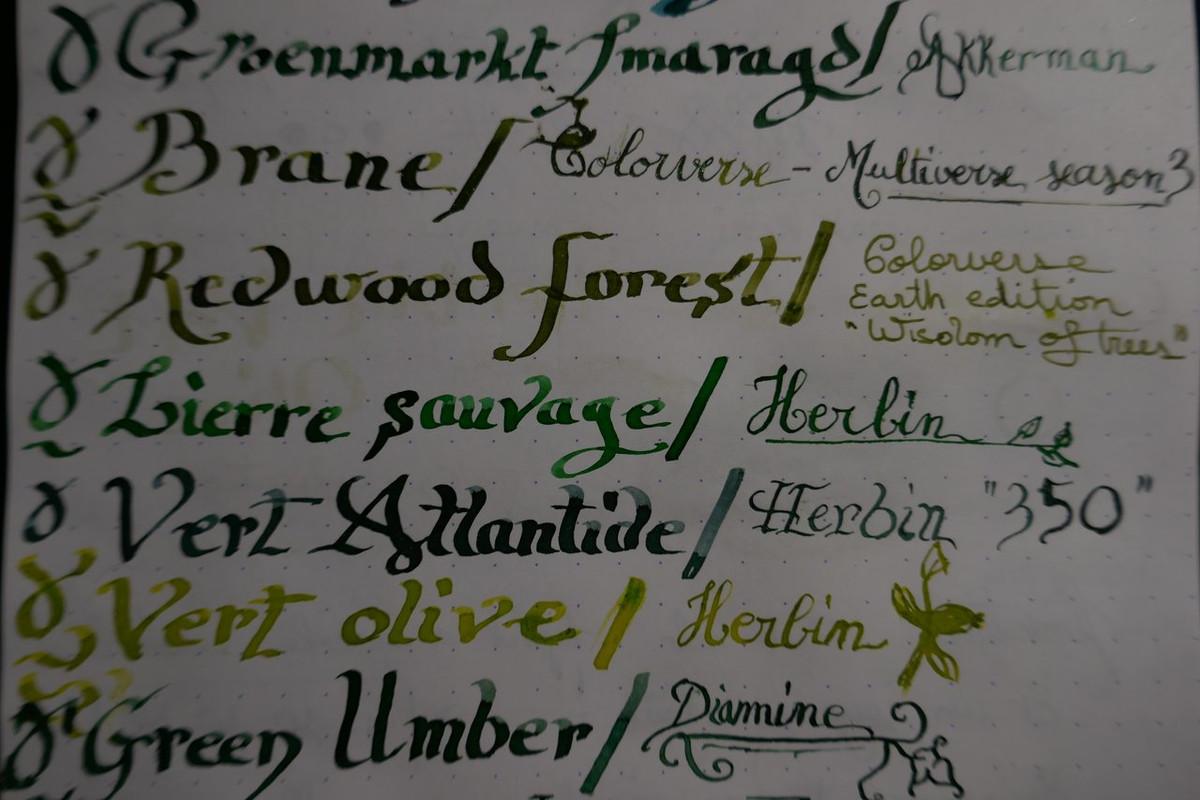 Groenmarkt Smaragd / Akkerman
Brane / Colorverse - Multiverse season 3
Redwood forest / Colorverse
Earth edition
"Wisdom of trees"
Lierre sauvage / Herbin
Vert Atlantide / Herbin "350"
Vert olive / Herbin
Green Umber / Diamine